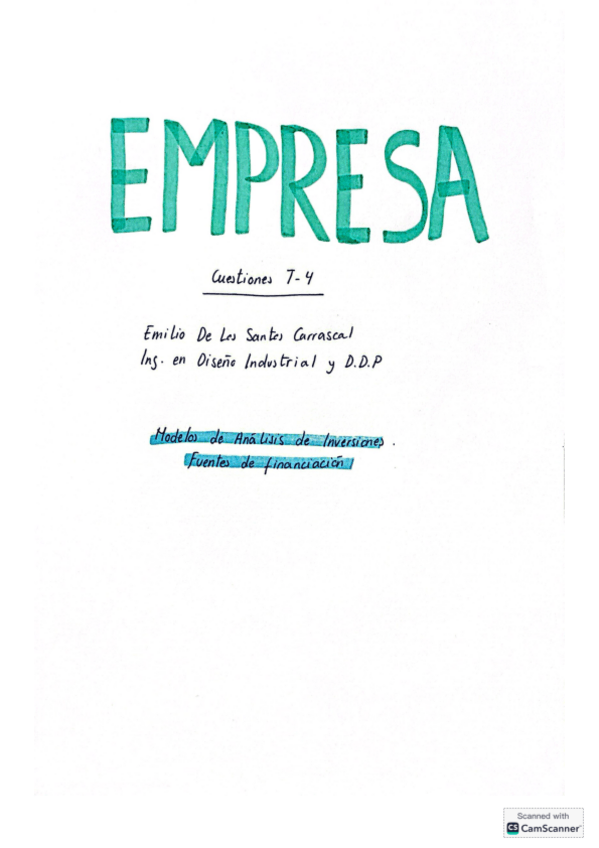 EMPRESA
Cuestiones T-4
Emilio De Los Santos Carrascal
Ing. en Diseño Industrial y D.D.P
Modelos de Análisis de Inversiones.
Fuentes de financiación
Scanned with
CS CamScanner